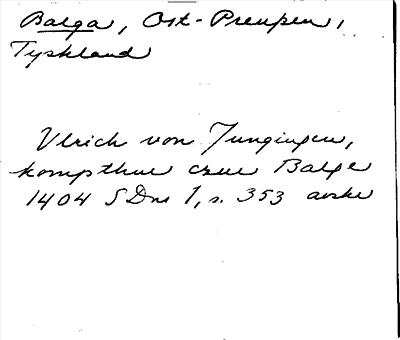 Balga, Ost-Preußen,
Tyskland
Ulrich von Jungingen,
kompthur czue Balge
1404 SDns 1, s. 353 avskr